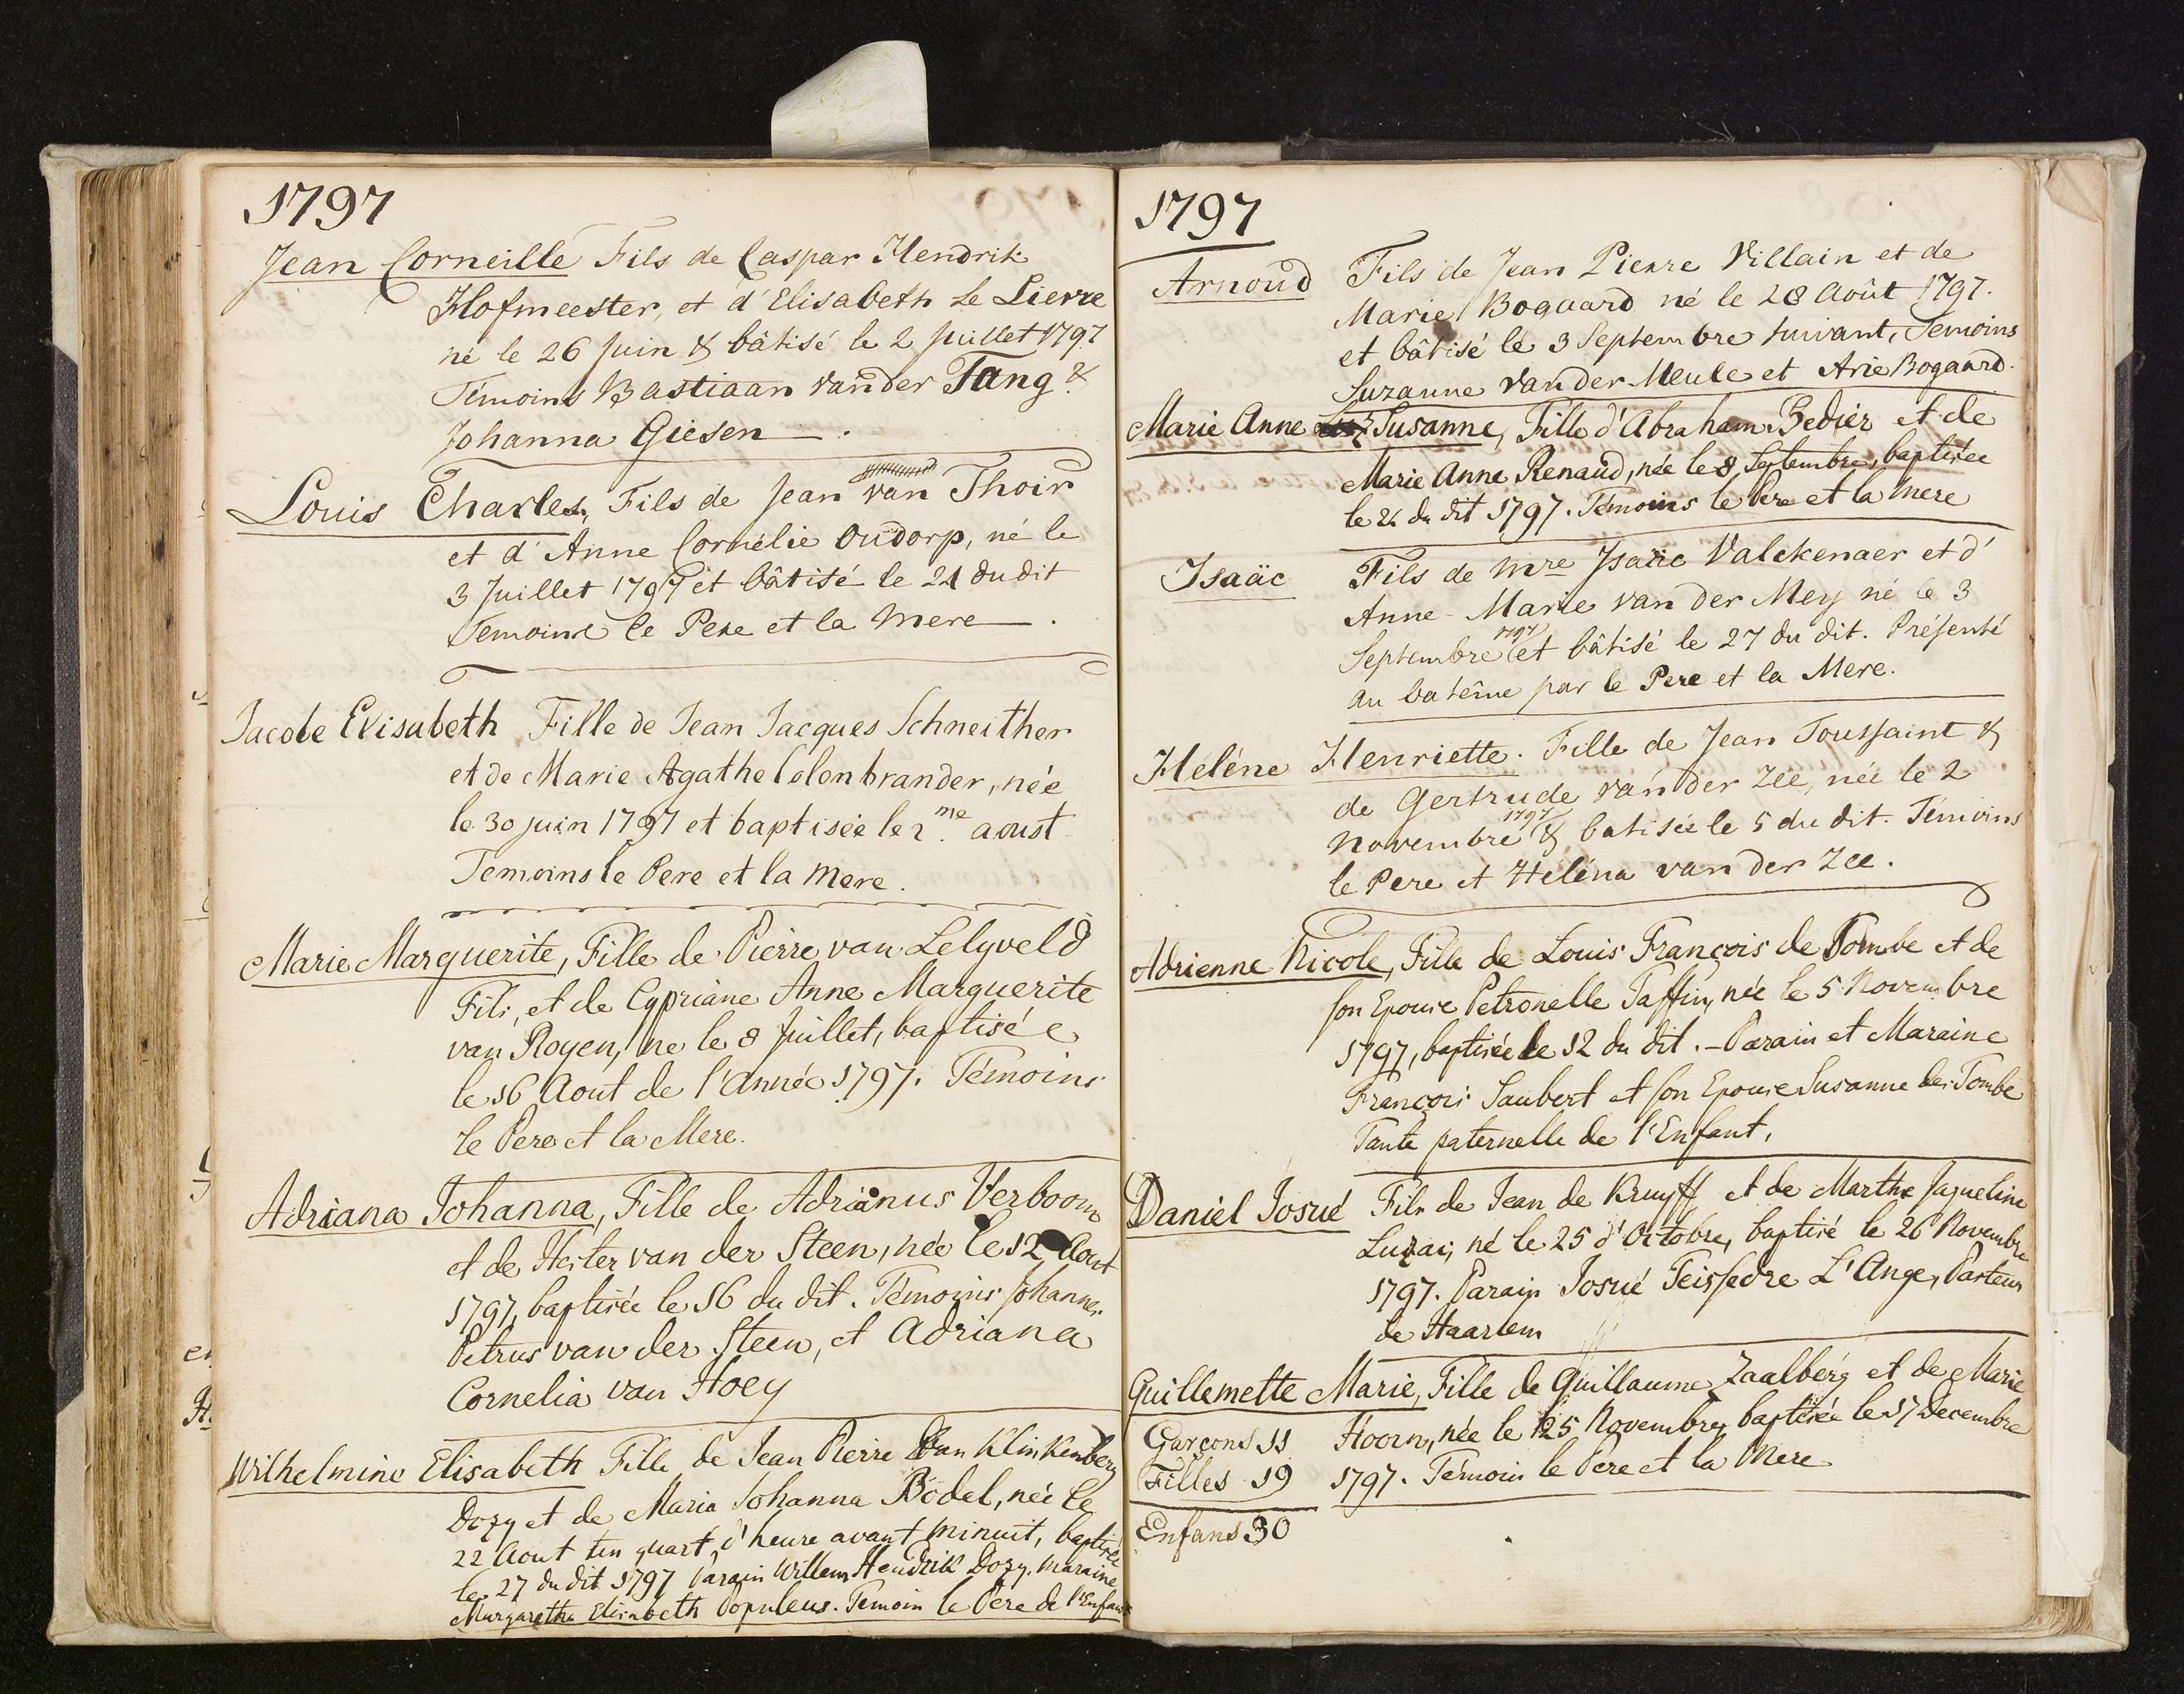 1797
Jean Corneille Fils de Caspar Hendrik
Hofmeester, et d'Elisabeth Le Lierre
né le 26 Juin & bâtisé le 2 Juillet 1797
Témoins Bastiaan van der Tang &
Johanna Giesen.
Louis Charles, Fils de Jean van Thoir
et d'Anne Cornélie Oudorp, né le
3 Juillet 1797 et bâtisé le 21 du dit
Temoins le Pere et la Mere.
Jacobe Elisabeth Fille de Jean Jacques Schneither
et de Marie Agathe Colonbrander, née
le 30 juin 1797 et baptisée le 2.me aoust
Temoins le Pere et la Mere.
Marie Marguerite, Fille de Pierre van Lelyveld
Fils, et de Cypriane Anne Marguerite
van Royen, ne le 8 Juillet, baptisée
le 16 Aout de l'Année 1797. Témoins
le Pere et la Mere.
Adriana Johanna, Fille de Adrianus Verboom
et de Hester van der Steen, née le 12 Aout
1797, baptisée le 16 du dit. Témoins Johannes
Petrus van der Steen, et Adriana
Cornelia van Hoey
Wilhelmine Elisabeth Fille de Jean Pierre van Klinkenberg
Dozy et de Maria Johanna Bödel, née le
22 Aout un quart d'heure avant minuit, baptisée
le 27 du dit 1797 Parain Willem Hendrik Dozy. Maraine
Margaretha Elisabeth Populeus. Temoin le Pere de l'Enfant
1797
Arnoud Fils de Jean Pierre Villain et de
Marie Bogaard né le 28 Août 1797.
et bâtisé le 3 Septembre suivant, Temoins
Suzanne van der Meule et Arie Bogaard.
Marie Anne Susanne, Fille d'Abraham Bedier et de
Marie Anne Renaud, née le 8 Septembre, baptisée
le 24 du dit 1797. Témoins le Pere et la Mere
Isaäc Fils de Mre Ysaäc Valckenaer et d'
Anne-Marie van der Mey né le 3
Septembre 1797 et bâtisé le 27 du dit. Présenté
au batême par le Pere et la Mere.
Heléne Henriette. Fille de Jean Toussaint &
de Gertrude van der Zee, née le 2
Novembre 1797 & batisée le 5 du dit. Témoins
le Pere et Heléna van der Zee.
Adrienne Nicole, Fille de Louis François de Tombe et de
son Epouse Petronelle Taffin, née le 5 Novembre
1797, baptisée le 12 du dit. - Parain et Maraine
François Saubert et son Epouse Susanne des Tombe
Tante paternelle de l'Enfant.
Daniel Josué Fils de Jean de Kruyff et de Marthe Jaqueline
Luzac, né le 25 d'Octobre, baptisé le 26 Novembre
1797. Parain Josué Teissedre L'Ange, Pasteur
de Haarlem
Guillemette Marie, Fille de Guillaume Zaalberg et de Marie
Hoorn, née le 25 Novembre, baptisée le 17 Decembre
1797. Témoin le Pere et la Mere
Garçons 11
Filles 19
Enfans 30